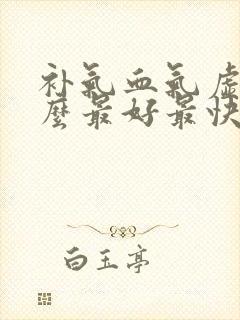 补气血气虚
麼最好最快
白玉亭